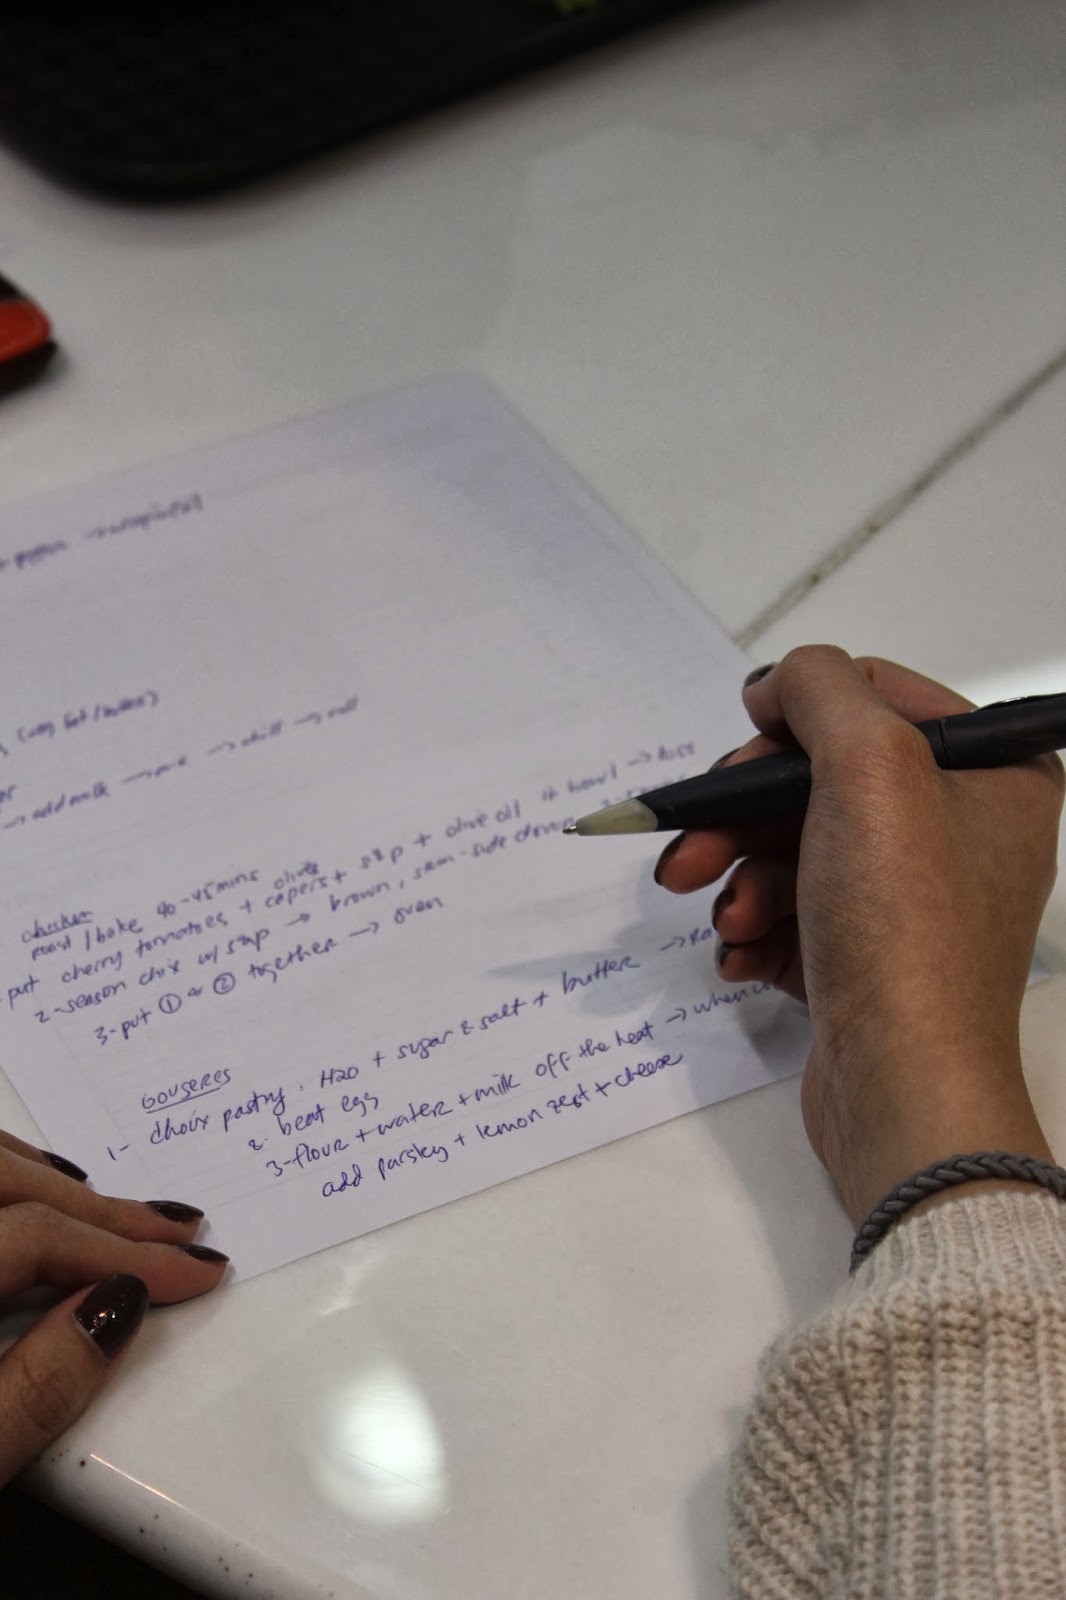 → add milk → mix → chill → roll
chicken
roast/bake 40-45mins olives
put cherry tomatoes + capers + s&p + olive oil in bowl → toss
2-season chix w/ s&p → brown, skin-side down
3-put ① & ② together → oven
GOUSERES
1- choix pastry. H2O + sugar & salt + butter →
2- beat egg
3-flour + water + milk off the heat → when
add parsley + lemon zest + cheese